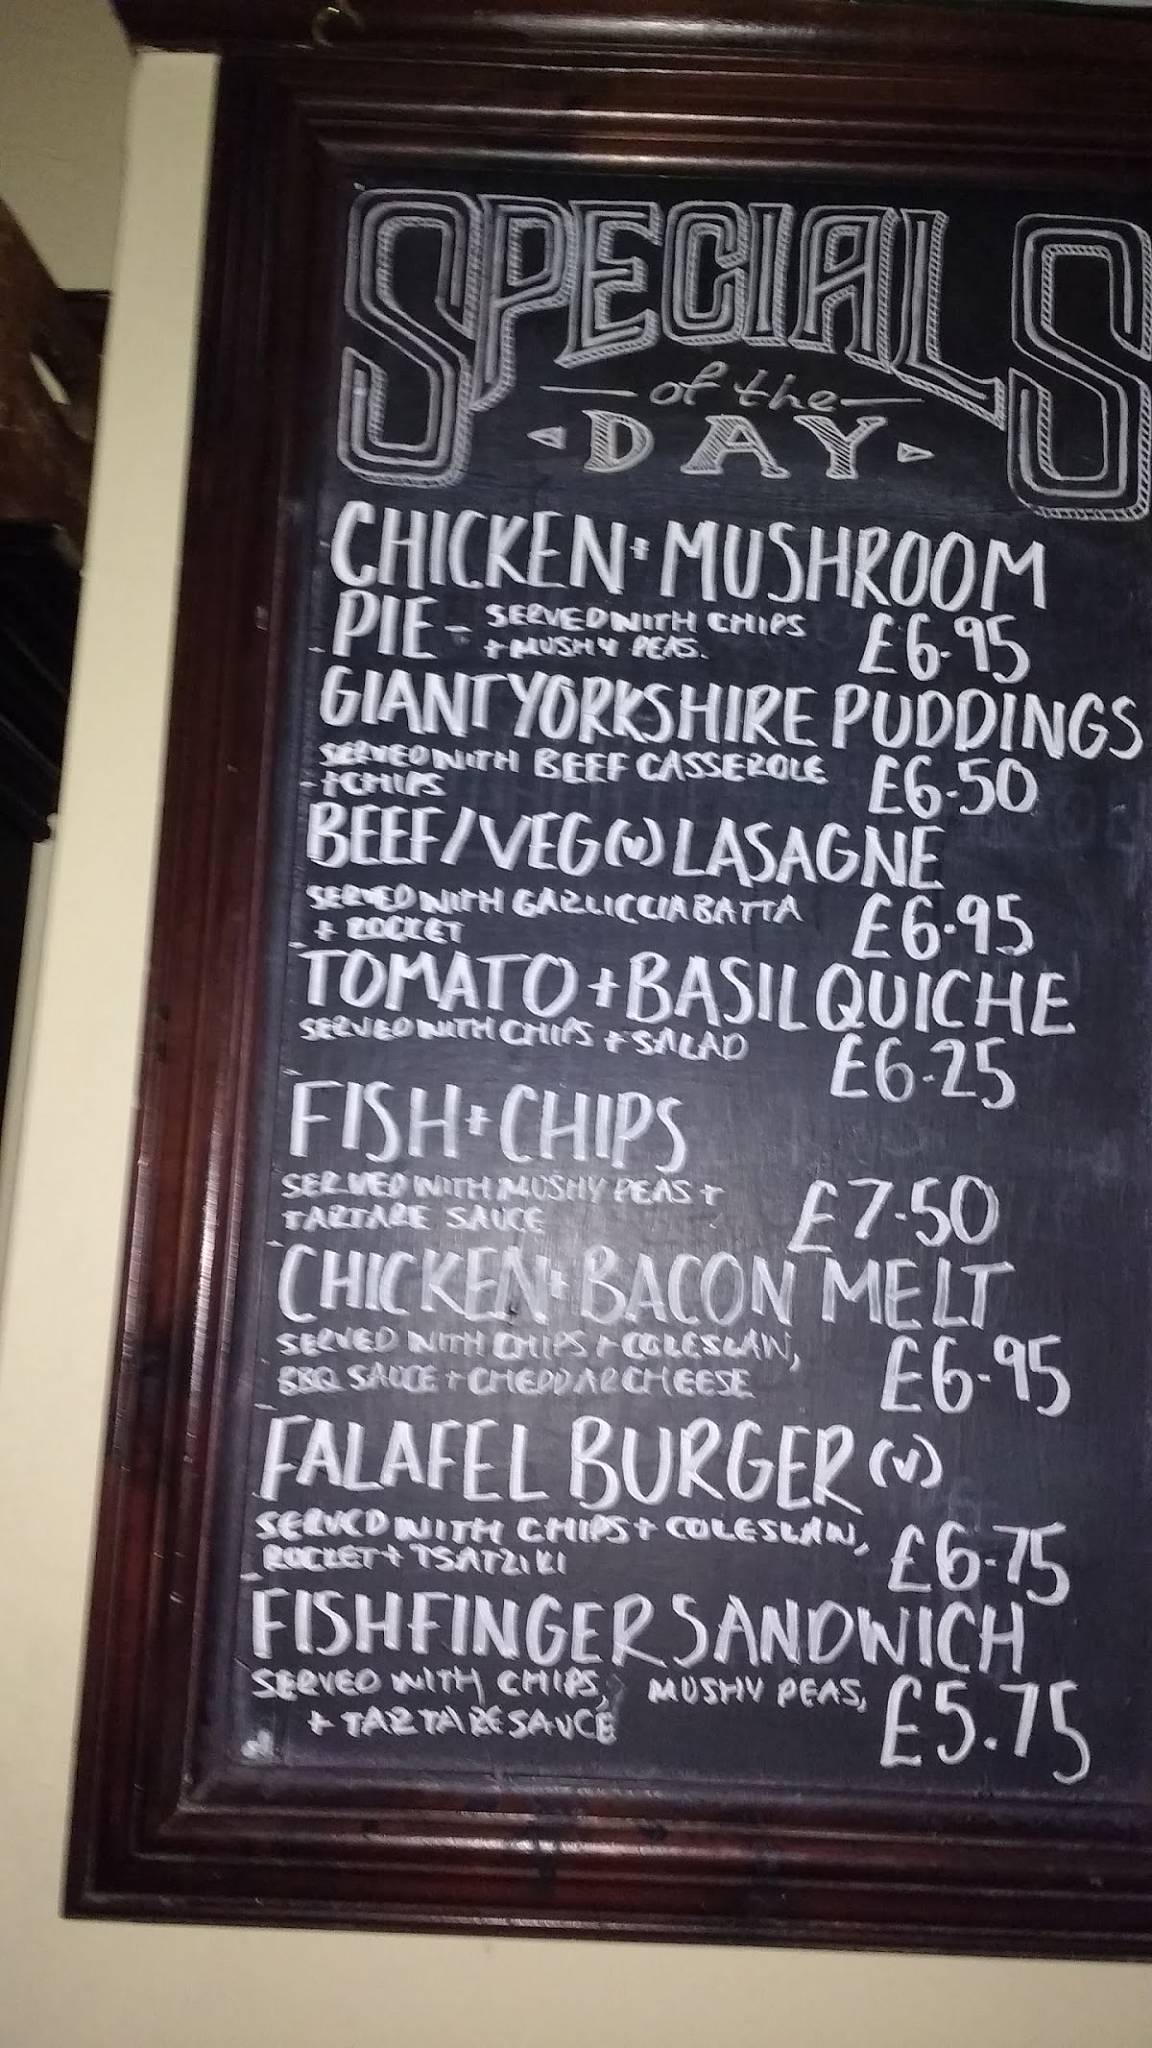 SPECIALS
of the
DAY
CHICKEN + MUSHROOM
PIE - SERVED WITH CHIPS
+ MUSHY PEAS. £6.95
GIANT YORKSHIRE PUDDINGS
SERVED WITH BEEF CASSEROLE
+ CHIPS £6.50
BEEF/VEG (V) LASAGNE
SERVED WITH GARLIC CIABATTA
+ ROCKET £6.95
TOMATO + BASIL QUICHE
SERVED WITH CHIPS + SALAD
£6.25
FISH + CHIPS
SERVED WITH MUSHY PEAS +
TARTARE SAUCE £7.50
CHICKEN + BACON MELT
SERVED WITH CHIPS + COLESLAW,
BBQ SAUCE + CHEDDAR CHEESE £6.95
FALAFEL BURGER (V)
SERVED WITH CHIPS + COLESLAW,
ROCKET + TSATZIKI £6.75
FISHFINGER SANDWICH
SERVED WITH CHIPS, MUSHY PEAS,
+ TARTARE SAUCE £5.75